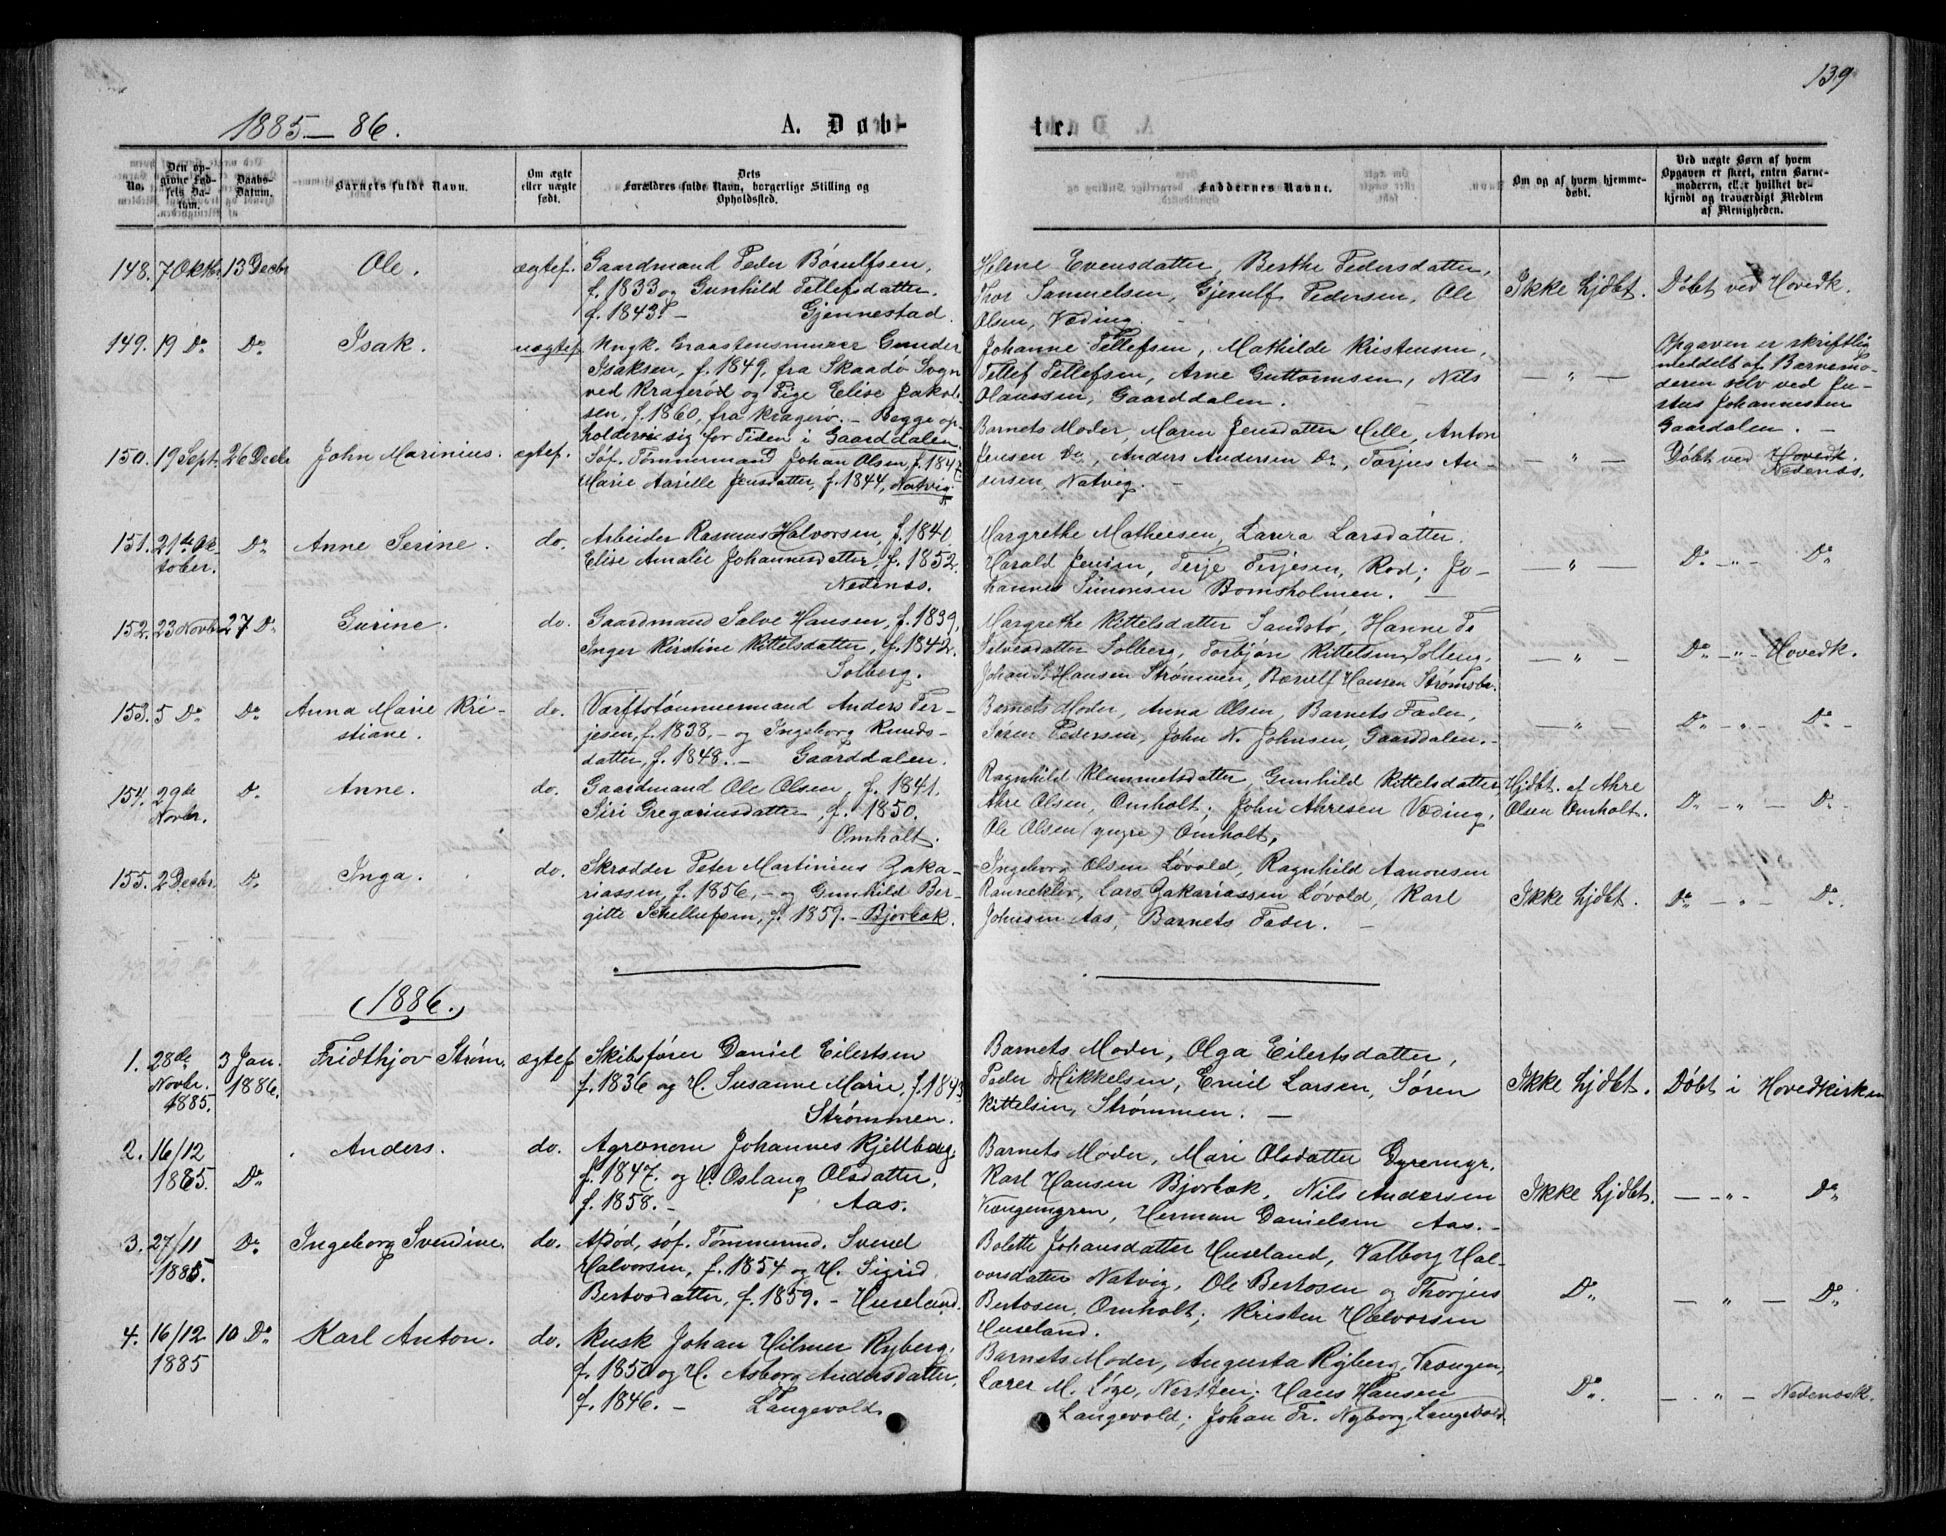 139
1885-86.
A. Døb-
te.
No.
Den opgivne Fødsels Datum.
Daabs-Datum.
Barnets fulde Navn.
Om ægte eller uægte født.
Dets Forældres fulde Navn, borgerlige Stilling og Opholdssted.
Faddernes Navne.
Om og af hvem hjemmedøbt.
Ved uægte Børn af hvem Opgaven er skeet, enten Barnemoderen, eller hvilket bekjendt og troværdigt Medlem af Menigheden.
148. 7 Oktbr 13 Decbr Ole. ægtef. Gaardmand Peder Børulfsen,
f. 1833 og Gunhild Tellefsdatter
f. 1843. - Gjennestad.
Helene Evensdatter, Berthe Pedersdatter,
Thor Samuelsen, Gjerulf Pedersen, Ole
Olsen, Væding.
Ikke hjdbt. Døbt ved Hovedk.
149. 19 Do Do Isak. uægtef. Ungk. Graastensmurer Gunder
Isaksen, f. 1849, fra Skaadø Sogn
ved Kragerød og Pige Elise Jakob-
sen, f. 1860, fra Kragerø. - Begge op-
holder sig for Tiden i Gaarddalen
Johanne Tellefsen, Mathilde Kristensen,
Tellef Tellefsen, Arne Guttormsen, Nils
Olaussen, Gaarddalen.
- " -
Opgaven er skriftlig
meddelt af Barnemo-
deren selv ved Ju-
stus Johannesen
Gaardalen. -
150. 19 Sept. 26 Decbr John Marinius. ægtef. Søf. Tømmermand Johan Olsen, f. 1847
Marie Aarille Jensdatter, f. 1844, Natvig.
Barnets Moder, Maren Jensdatter Hille, Anton
Jensen Do, Anders Andersen Do, Torjus An-
dersen, Natvig.
- " -
Døbt ved Hovedk.
Nedenæs.
151. 21de Ok-
tober. Do Anne Serine. do. Arbeider Rasmus Halvorsen, f. 1840.
Elise Amalie Johannesdatter, f. 1852.
Nedenæs.
Margrethe Mathiesen, Laura Larsdatter.
Harald Jensen, Terje Terjesen, Rod; Jo-
hannes Simonsen Bomsholmen. -
- " -
Do - " - Do
152. 23 Novbr 27 Do Gurine. do. Gaardmand Salve Hansen, f. 1839,
Inger Kirstine Kittelsdatter, f. 1842.
Solberg.
Margrethe Kittelsdatter Sandstø, Hanne Fr
Salvesdatter Solberg, Torbjøn Kittelsen Solberg,
Johan S. Hansen Strømmen, Børulf Hansen Strømsbo.
- " -
Do - " - Hovedk.
153. 5 Do Do Anna Marie Kri-
stiane. do. Værftstømmermand Anders Ter-
jesen, f. 1838, - og Ingeborg Knuds-
datter, f. 1848. - Gaarddalen.
Barnets Moder, Anna Olsen, Barnets Fader,
Søren Pedersen, John N. Johnsen, Gaarddalen. -
- " -
Do - " - Do -
154. 29de
Novbr. Do Anne. do. Gaardmand Ole Olsen, f. 1841.
Siri Gregoriusdatter, f. 1850.
Omholt.
Ragnhild Klemmetsdatter, Gunhild Kittelsdatter
Ahre Olsen, Omholt; John Ahresen Væding,
Ole Olsen (yngre) Omholt,
Hjdbt. af Ahre
Olsen Omholt.
Do - " - Do -
155. 2 Decbr. Do Inga. do. Skrædder Peter Martinius Zaka-
riassen, f. 1856, - og Gunhild Ber-
gitte Schellufsen, f. 1859. - Bjorbæk.
Ingeborg Olsen Løvold, Ragnhild Aanonsen
Ranneklev, Lars Zakariassen Løvold, Karl
Johnsen Aas, Barnets Fader. -
Ikke hjdbt. Do - " - Do.
1886.
1. 28de
Novbr.
1885. 3 Jan.
1886. Fridthjov Strøm. ægtef. Skibsfører Daniel Eilertsen
f. 1836 og H. Susanne Marie, f. 1843
Strømmen.
Barnets Moder, Olga Eilertsdatter,
Peder Mikkelsen, Emil Larsen, Søren
Kittelsen, Strømmen. -
Ikke hjdbt. Døbt i Hovedkirken
2. 16/12
1885. Do Anders. do. Agronom Johannes Kjellberg,
f. 1847. og H. Oslaug Olsdatter,
f. 1858. - Aas.
Barnets Moder, Mari Olsdatter Dyremyr.
Karl Hansen Bjorbæk, Nils Andersen
Kængemyren, Herman Danielsen Aas. -
Ikke hjdbt. - " - Do
3. 27/11
1885. Do Ingeborg Svendine. do. Afdød, søf. Tømmermd. Svend
Halvorsen, f. 1854 og H. Sigrid
Bertosdatter, f. 1859. - Huseland.
Bolette Johansdatter Huseland, Valborg Hal-
vorsdatter Natvig, Ole Bertosen og Thorjus
Bertosen, Omholt; Kristen Halvorsen
Huseland.
Do - " - Do
4. 16/12
1885 10 Do Karl Anton. do. Kusk Johan Hilmer Ryberg,
f. 1850 og H. Asborg Andersdatter,
f. 1846. - Langevold
Barnets Moder, Augusta Ryberg, Vrengen,
Lærer M. Løge, Nersten; Hans Hansen
Langevold; Johan Fr. Nyborg, Langevold
Do. - " - Nedenæsk.